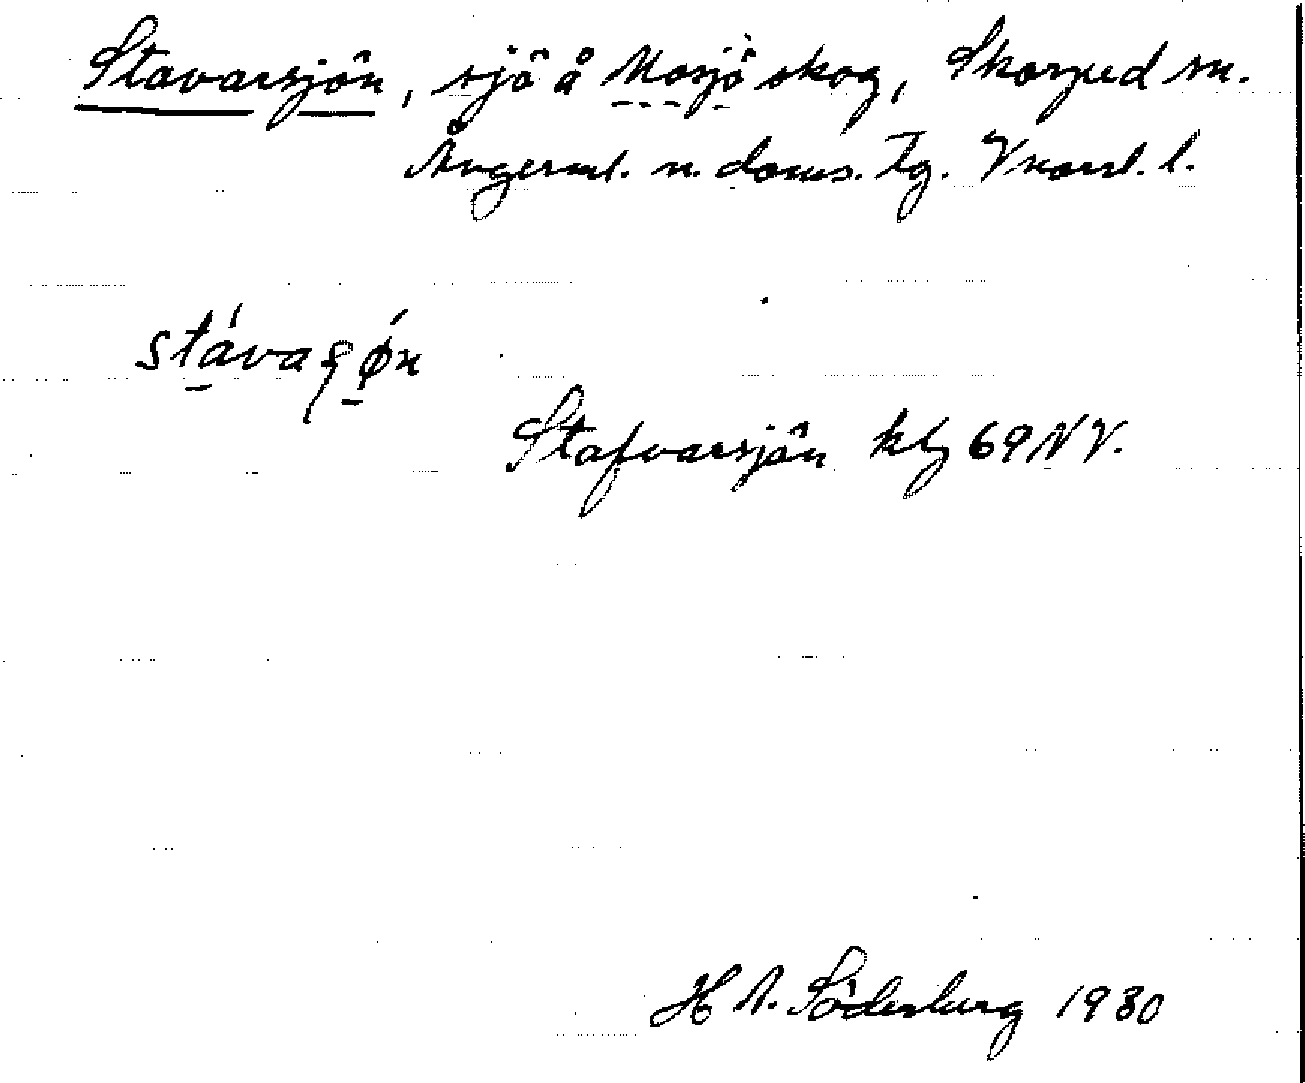 Stavarsjön, sjö å Mosjö skog, Skorped sn.
Ångerml. n. doms. tg. Vnorrl. l.
Stafvarsjön kbl 69 NV.
H A. Söderberg 1930